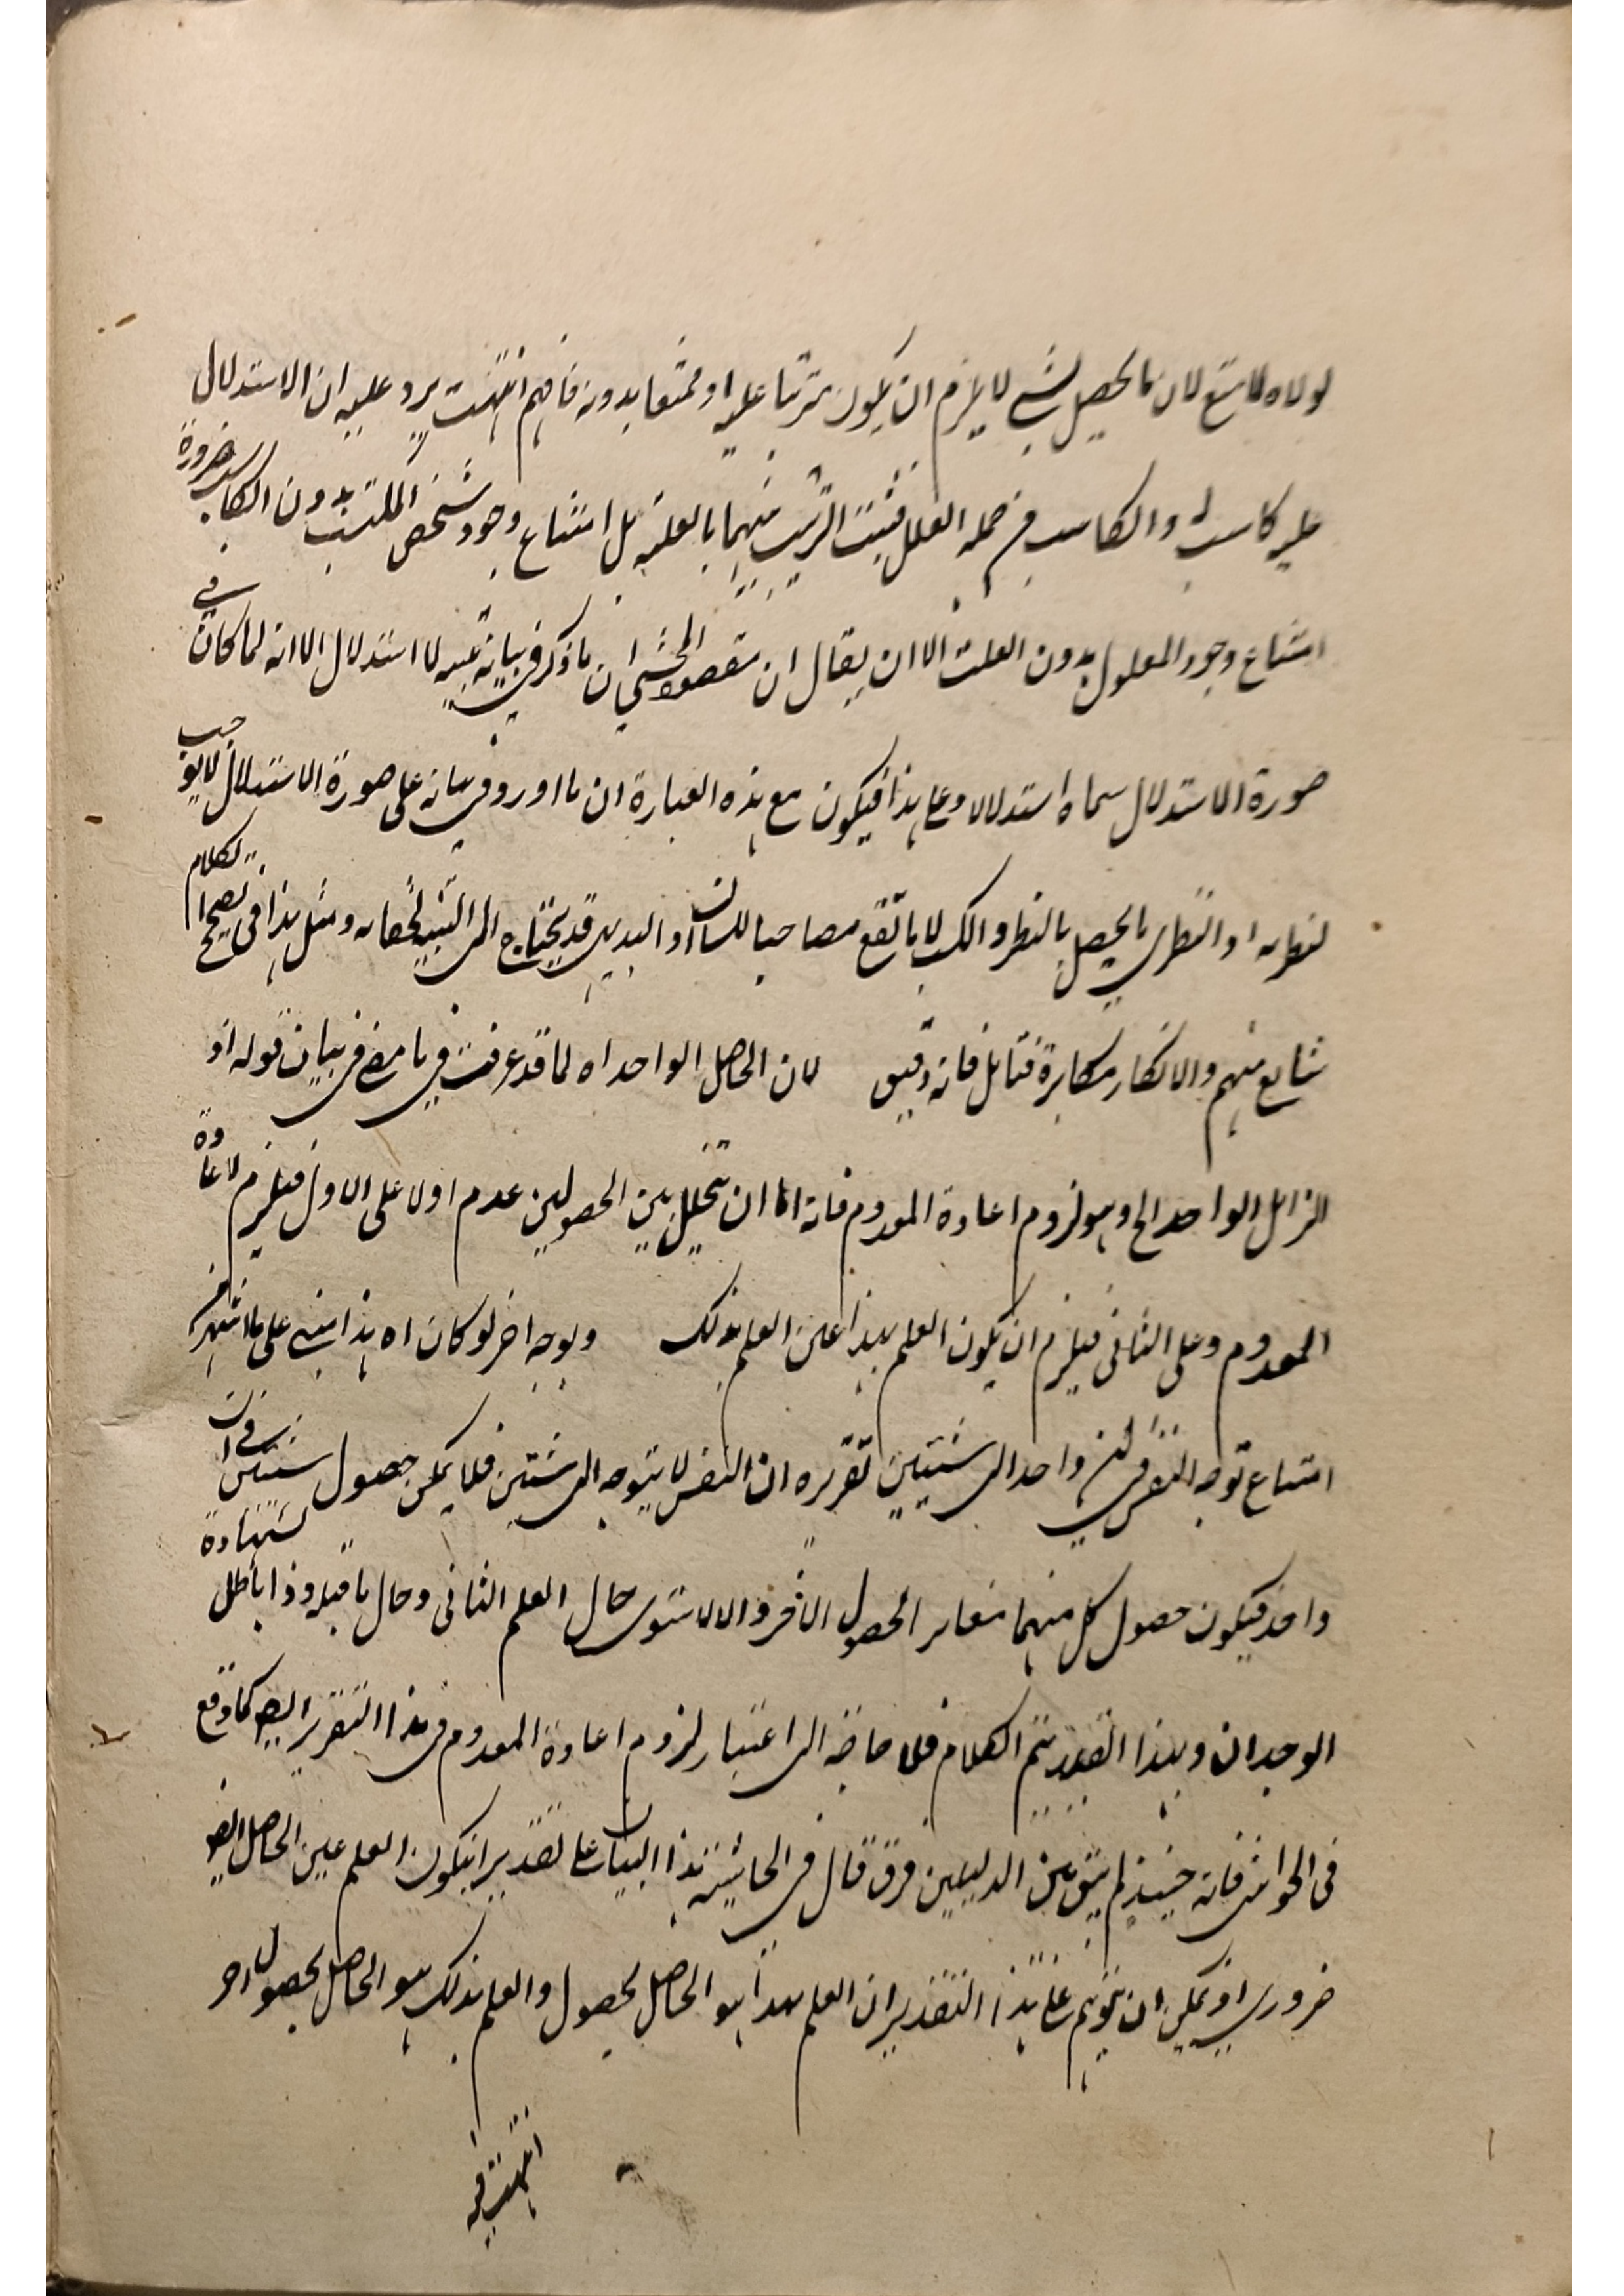 لولاه لامتنع لان ما يحصل بشي لا يلزم ان يكون مترتبا عليه او ممتنعا بدونه فافهم انتهت يرد عليه ان الاستدلال
عليه كاسب له والكاسب من جملة العلل فثبت الترتب بينهما بالعلية بل امتناع وجود شخص المكتسب بدون الكاسب ضرورة
امتناع وجود المعلول بدون العلة الا ان يقال ان مقصود المحشي ان ما ذكر في بيانه تنبيه لا استدلال الا انه لما كان في
صورة الاستدلال سماه استدلالا وعلى هذا فيكون مع هذه العبارة ان ما اورد في بيانه على صورة الاستدلال لا يوجب
نظريته اذ النظري ما يحصل بالنظر والكسب لا ما يقع مصاحبا للسان اذ البديهي قد يحتاج الى التنبيه لخفائه ومثل هذا في تصحيح الكلام
شايع منهم والانكار مكابرة فتامل فانه دقيق لان الحاصل الواحد اه لما قد عرفت في ما مضى في بيان قوله اذ
الزائل الواحد الخ وهو لزوم اعادة المعدوم فانه اما ان يتخلل بين الحصولين عدم اولا على الاول فيلزم اعادة
المعدوم وعلى الثاني فيلزم ان يكون العلم بهذا عين العلم بذلك وبوجه اخر لو كان اه هذا مبني على ما اشتهر من
امتناع توجه النفس في ان واحد الى شيئين تقريره ان النفس لا يتوجه الى شيئين فلا يمكن حصول شيئين في ان
واحد فيكون حصول كل منهما مغاير الحصول الاخر والا لاستوى حال العلم الثاني وحال ما قبله وذا باطل بشهادة
الوجدان وبهذا القدر يتم الكلام فلا حاجة الى اعتبار لزوم اعادة المعدوم في هذا التقرير ايضا كما وقع
في الحواشي فانه حينئذ لم يبق بين الدليلين فرق قال في الحاشية هذا البيان على تقدير ان يكون العلم عين الحاصل ايضا
ضروري اذ يمكن ان يتوهم على هذا التقدير ان العلم بهذا هو الحاصل بحصول والعلم بذلك هو الحاصل بحصول اخر
انتهت فيه